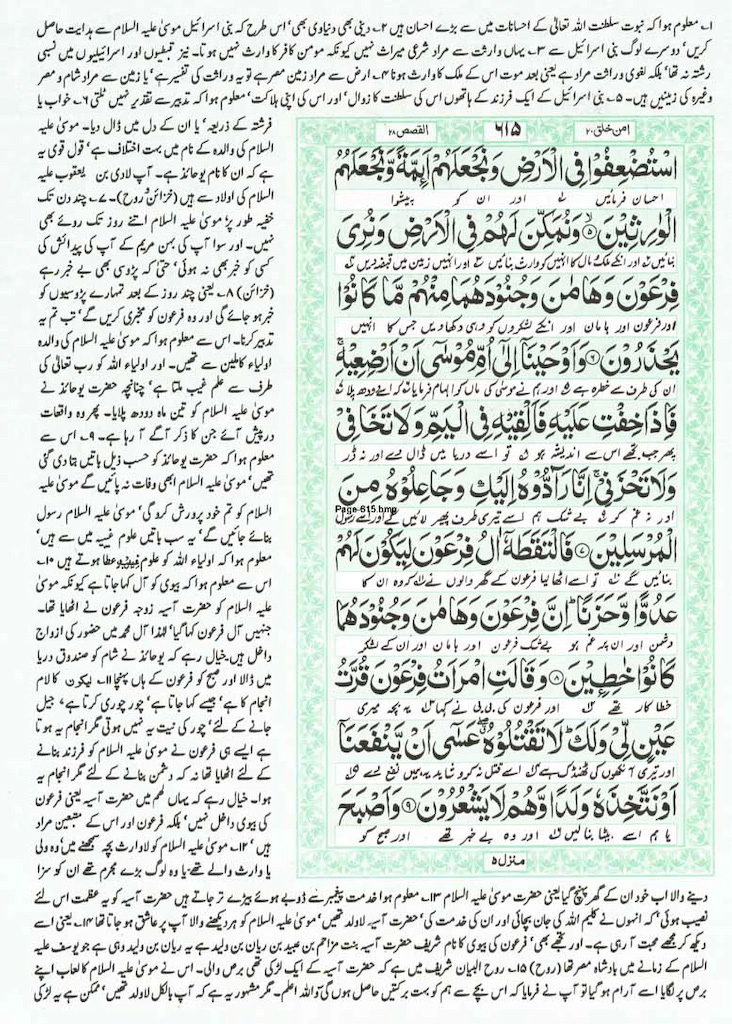 ۱۔ معلوم ہوا کہ نبوت سلطنت اللہ تعالیٰ کے احسانات میں سے بڑے احسان ہیں ۲۔ دینی بھی دنیاوی بھی‘ اس طرح کہ بنی اسرائیل موسیٰ علیہ السلام سے ہدایت حاصل
کریں‘ دوسرے لوگ بنی اسرائیل سے ۳۔ یہاں وارثت سے مراد شرعی میراث نہیں کیونکہ مومن کافر کا وارث نہیں ہوتا۔ نیز قبطیوں اور اسرائیلیوں میں نسبی
رشتہ نہ تھا‘ بلکہ لغوی وراثت مراد ہے یعنی بعد موت اس کے ملک کا وارث ہونا ۴۔ ارض سے مراد زمین مصر ہے تو یہ وراثت کی تفسیر ہے‘ یا زمین سے مراد شام و مصر
وغیرہ کی زمینیں ہیں۔ ۵۔ بنی اسرائیل کے ایک فرزند کے ہاتھوں اس کی سلطنت کا زوال‘ اور اس کی اپنی ہلاکت‘ معلوم ہوا کہ تدبیر سے تقدیر نہیں ٹلتی ۶۔ خواب یا
فرشتے کے ذریعہ‘ یا ان کے دل میں ڈال دیا۔ موسیٰ علیہ
السلام کی والدہ کے نام میں بہت اختلاف ہے‘ قول قوی یہ
ہے کہ ان کا نام یوحانذ ہے۔ آپ لاوی بن یعقوب علیہ
السلام کی اولاد سے ہیں (خزائن و روح)۔ ۷۔ چند دن تک
خفیہ طور پر‘ موسیٰ علیہ السلام اتنے روز تک روئے بھی
نہیں۔ اور سوا آپ کی بہن مریم کے آپ کی پیدائش کی
کسی کو خبر بھی نہ ہوئی‘ حتیٰ کہ پڑوسی بھی بے خبر رہے
(خزائن) ۸۔ یعنی چند روز کے بعد تمہارے پڑوسیوں کو
خبر ہو جائے گی اور وہ فرعون کو مخبری کریں گے‘ تب تم یہ
تدبیر کرنا۔ اس سے معلوم ہوا کہ موسیٰ علیہ السلام کی والدہ
اولیاء کاملین سے تھیں۔ اور اولیاء اللہ کو رب تعالیٰ کی
طرف سے علم غیب ملتا ہے‘ چنانچہ حضرت یوحانذ نے
موسیٰ علیہ السلام کو تین ماہ دودھ پلایا۔ پھر وہ واقعات
درپیش آئے جن کا ذکر آگے آ رہا ہے۔ ۹۔ اس سے
معلوم ہوا کہ حضرت یوحانذ کو حسب ذیل باتیں بتا دی گئی
تھیں‘ موسیٰ علیہ السلام ابھی وفات نہ پائیں گے موسیٰ علیہ
السلام کو تم خود پرورش کرو گی‘ موسیٰ علیہ السلام رسول
بنائے جائیں گے‘ یہ سب باتیں علوم غیبیہ میں سے ہیں‘
معلوم ہوا کہ اولیاء اللہ کو علوم غیبیہ عطا ہوتے ہیں ۱۰۔
اس سے معلوم ہوا کہ بیوی کو آل کہا جاتا ہے کیونکہ موسیٰ
علیہ السلام کو حضرت آسیہ زوجہ فرعون نے اٹھایا تھا۔
جنہیں آل فرعون کہا گیا‘ لہٰذا آل محمد میں حضور کی ازواج
داخل ہیں۔ خیال رہے کہ یوحانذ نے شام کو صندوق دریا
میں ڈالا اور صبح کو فرعون کے ہاں پہنچا ۱۱۔ لیکون کا لام
انجام کا ہے‘ جیسے کہا جاتا ہے‘ چور چوری کرتا ہے‘ جیل
جانے کے لئے‘ چور کی نیت یہ نہیں ہوتی مگر انجام یہ ہوتا
ہے ایسے ہی فرعون نے موسیٰ علیہ السلام کو فرزند بنانے
کے لئے اٹھایا تھا نہ کہ دشمن بنانے کے لئے مگر انجام یہ
ہوا۔ خیال رہے کہ یہاں لھم میں حضرت آسیہ یعنی فرعون
کی بیوی داخل نہیں‘ بلکہ فرعون اور اس کے متبعین مراد
ہیں‘ ۱۲۔ موسیٰ علیہ السلام کو لاوارث بچہ سمجھنے میں‘ وہ ولی
یا وارث والے تھے‘ یا وہ لوگ بڑے مجرم تھے ان کو سزا
امن خلق ۲۰ ۶۱۵ القصص ۲۸
اسْتُضْعِفُوْا فِی الْاَرْضِ وَنَجْعَلَهُمْ اَىِٕمَّةً وَّنَجْعَلَهُمُ
احسان فرمائیں اور ان کو پیشوا
الْوٰرِثِيْنَ ۵ وَنُمَكِّنَ لَهُمْ فِی الْاَرْضِ وَنُرِیَ
بنائیں اور انکے ملک مال کا انہیں کو وارث بنائیں اور انہیں زمین میں قبضہ دیں
فِرْعَوْنَ وَهَامٰنَ وَجُنُوْدَهُمَا مِنْهُمْ مَّا كَانُوْا
اور فرعون اور ہامان اور انکے لشکروں کو وہی دکھا دیں جس کا انہیں
يَحْذَرُوْنَ ۶ وَاَوْحَيْنَاۤ اِلٰۤى اُمِّ مُوْسٰۤى اَنْ اَرْضِعِيْهِ
ان کی طرف سے خطرہ ہے اور ہم نے موسیٰ کی ماں کو الہام فرمایا کہ اسے دودھ پلا
فَاِذَا خِفْتِ عَلَيْهِ فَاَلْقِيْهِ فِی الْيَمِّ وَلَا تَخَافِیْ
پھر جب تجھے اس سے اندیشہ ہو تو اسے دریا میں ڈال دے اور نہ ڈر
وَلَا تَحْزَنِیْ اِنَّا رَآدُّوْهُ اِلَيْكِ وَجَاعِلُوْهُ مِنَ
Page-615.bmp
اور نہ غم کر بے شک ہم اسے تیری طرف پھیر لائیں گے اور اسے رسول
الْمُرْسَلِيْنَ ۷ فَالْتَقَطَهٗۤ اٰلُ فِرْعَوْنَ لِيَكُوْنَ لَهُمْ
بنائیں گے تو اسے اٹھا لیا فرعون کے گھر والوں نے کہ وہ ان کا
عَدُوًّا وَّحَزَنًا اِنَّ فِرْعَوْنَ وَهَامٰنَ وَجُنُوْدَهُمَا
دشمن اور ان پر غم ہو بے شک فرعون اور ہامان اور ان کے لشکر
كَانُوْا خٰطِـِٕيْنَ ۸ وَقَالَتِ امْرَاَتُ فِرْعَوْنَ قُرَّتُ
خطا کار تھے اور فرعون کی بی بی نے کہا یہ بچہ میری
عَيْنٍ لِّیْ وَلَكَ لَا تَقْتُلُوْهُ عَسٰۤى اَنْ يَّنْفَعَنَاۤ
اور تیری آنکھوں کی ٹھنڈک ہے اسے قتل نہ کرو شاید یہ ہمیں نفع دے
اَوْ نَتَّخِذَهٗ وَلَدًا وَّهُمْ لَا يَشْعُرُوْنَ ۹ وَاَصْبَحَ
یا ہم اسے بیٹا بنا لیں اور وہ بے خبر تھے اور صبح کو
منزل ۵
دینے والا اب خود ان کے گھر پہنچ گیا یعنی حضرت موسیٰ علیہ السلام ۱۳۔ معلوم ہوا خدمت پیغمبر سے ڈوبے ہوئے بیڑے تر جاتے ہیں حضرت آسیہ کو یہ عظمت اس لئے
نصیب ہوئی‘ کہ انہوں نے کلیم اللہ کی جان بچائی اور ان کی خدمت کی‘ حضرت آسیہ لاولد تھیں‘ موسیٰ علیہ السلام کو ہر دیکھنے والا آپ پر عاشق ہو جاتا تھا ۱۴۔ یعنی اسے
دیکھ کر مجھے محبت آ رہی ہے۔ اور تجھے بھی‘ فرعون کی بیوی کا نام شریف حضرت آسیہ بنت مزاحم بن عبید بن ریان بن ولید ہے یہ ریان بن ولید وہی ہے جو یوسف علیہ
السلام کے زمانے میں بادشاہ مصر تھا (روح) ۱۵۔ روح البیان شریف میں ہے کہ حضرت آسیہ کے ایک لڑکی تھی برص والی۔ اس نے موسیٰ علیہ السلام کا لعاب اپنے
برص پر لگایا اسے آرام ہو گیا تو آپ نے فرمایا کہ اس بچے سے ہم کو بہت برکتیں حاصل ہوں گی واللہ اعلم۔ مگر مشہور یہ ہے کہ آپ بالکل لاولد تھیں‘ ممکن ہے یہ لڑکی